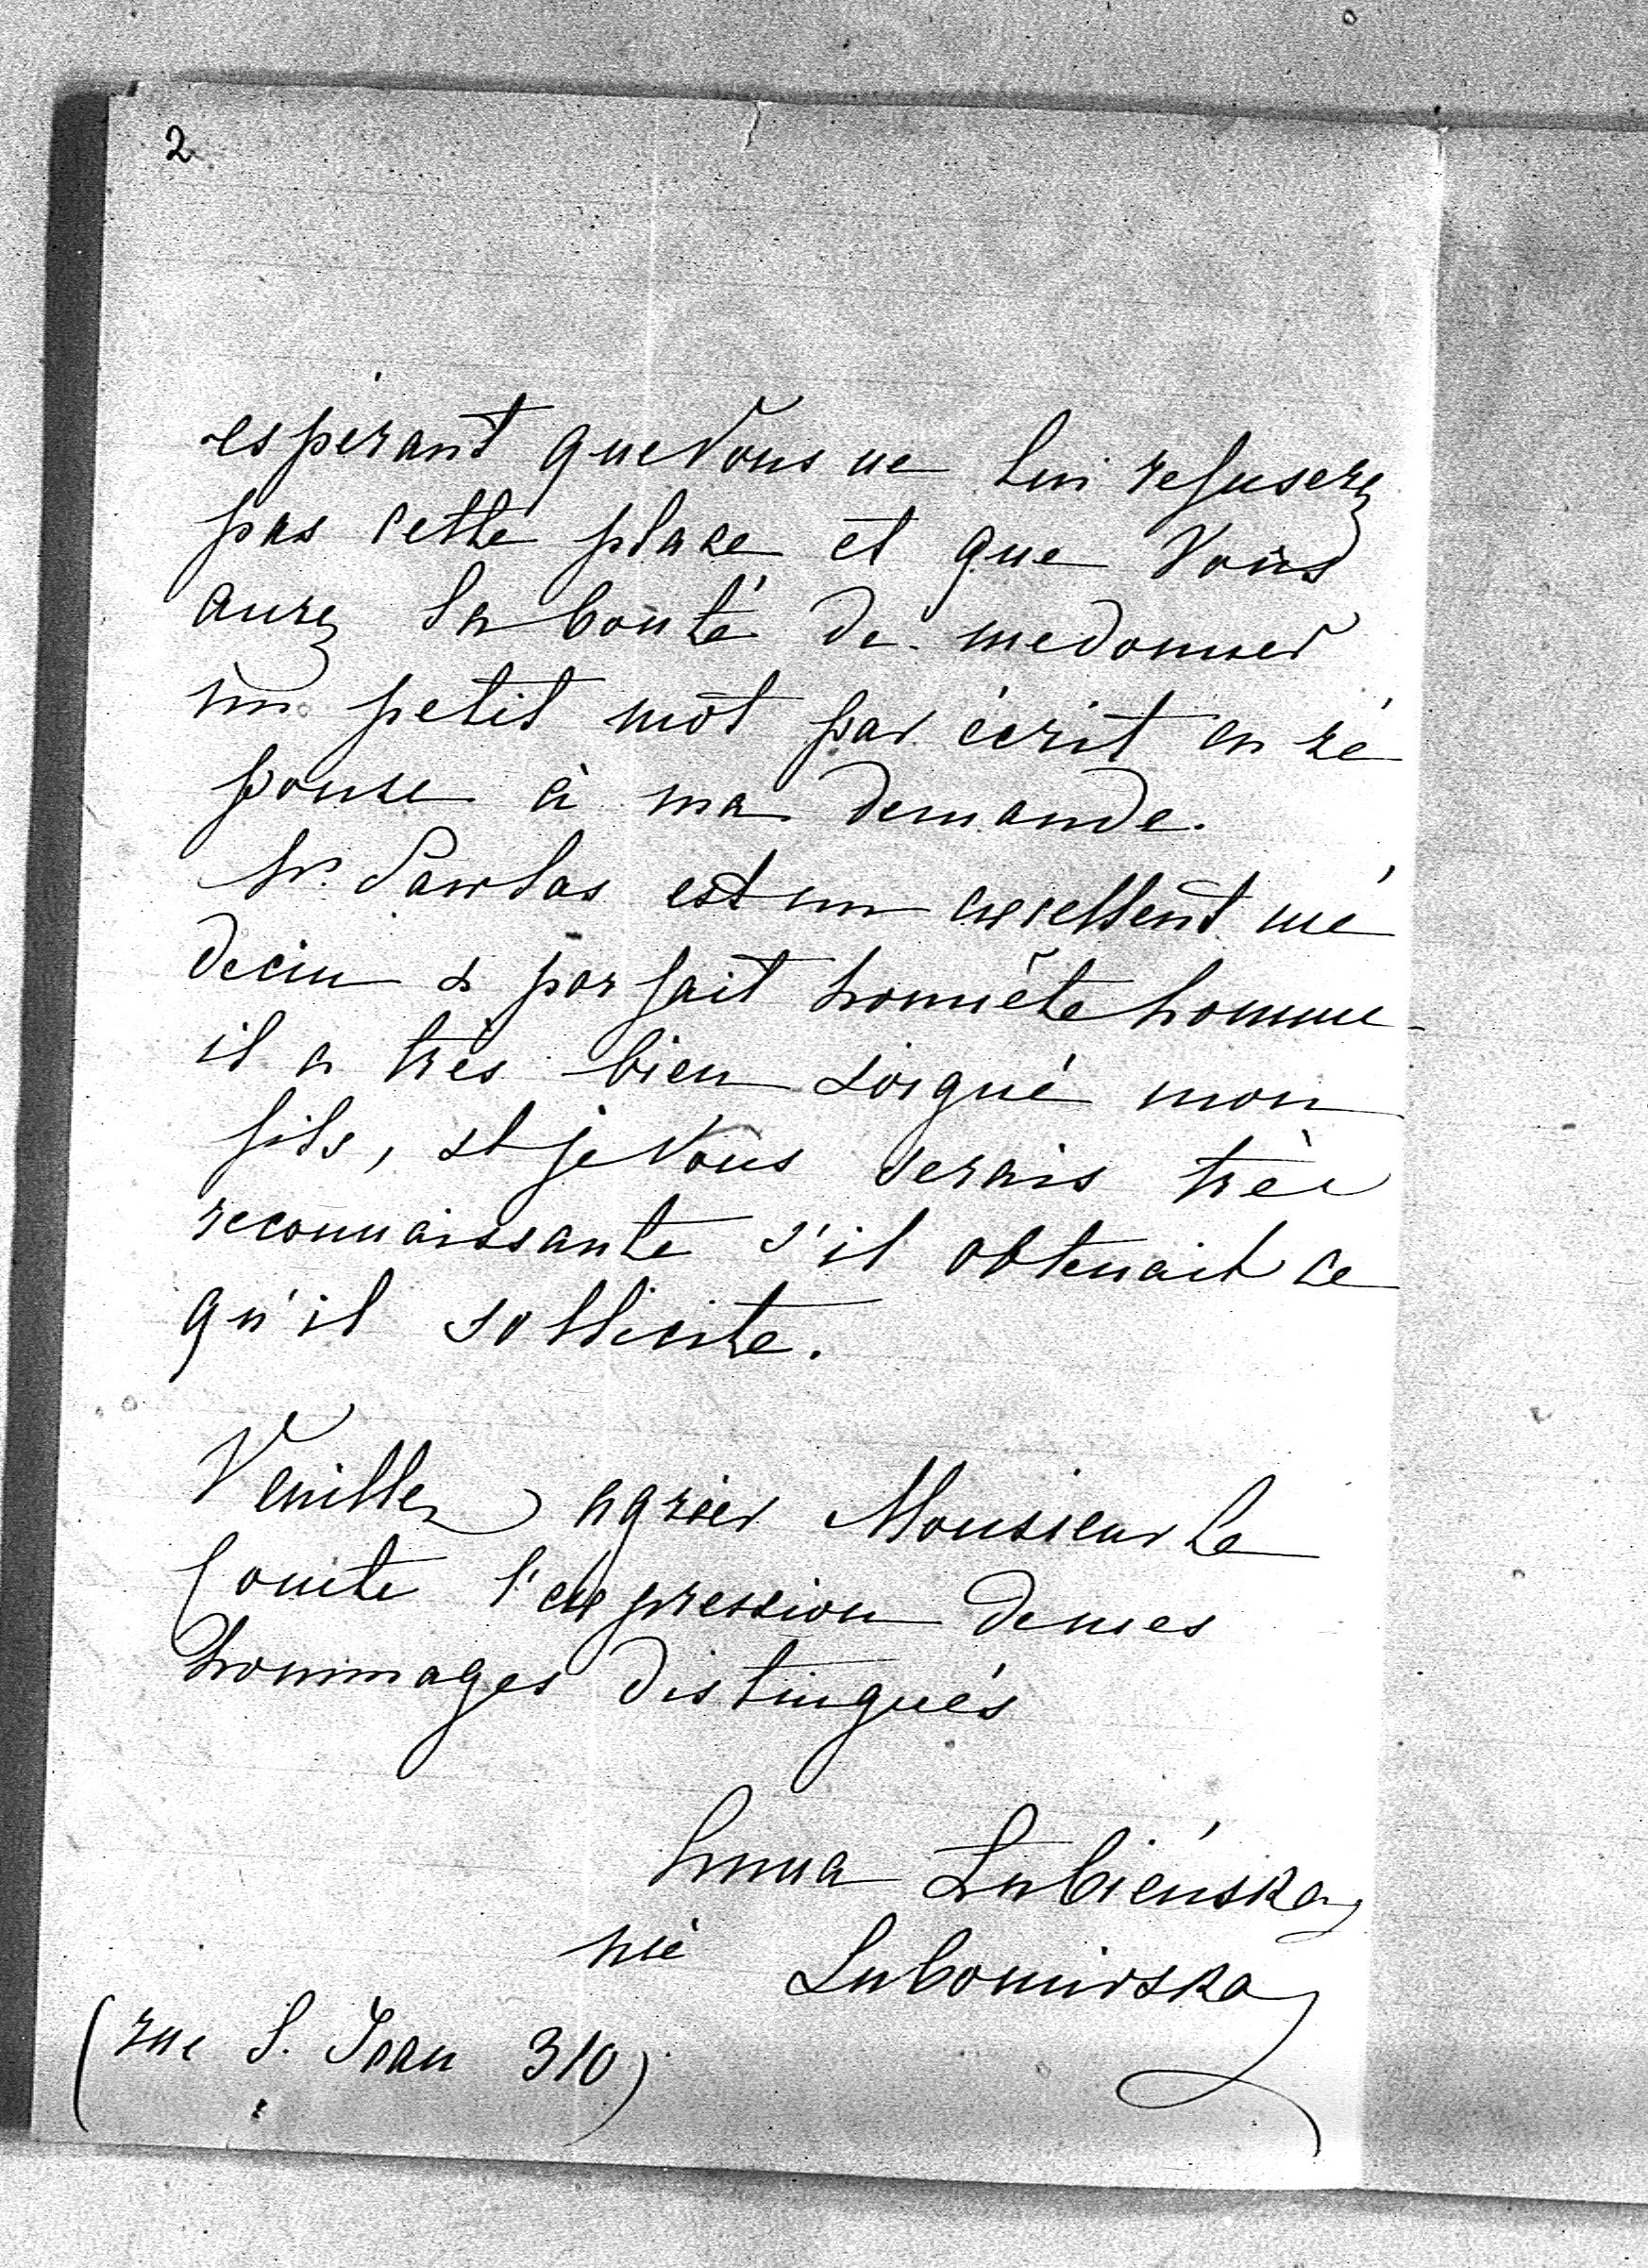 2
espérant que Vous ne lui refuserez
pas cette place et que Vous
aurez la bonté de me donner
un petit mot par écrit en ré
ponse à ma demande.
Mr. Pawlas est un excellent mé
decin & parfait honnête homme
il a très bien soigné mon
fils, et je Vous serais très
reconnaissante s'il obtenait ce
qu'il sollicite.
Veuillez agréer Monsieur le
Comte l'expression de mes
hommages distingués
Anna Łubieńska
née Lubomirska
(rue S. Jean 310)